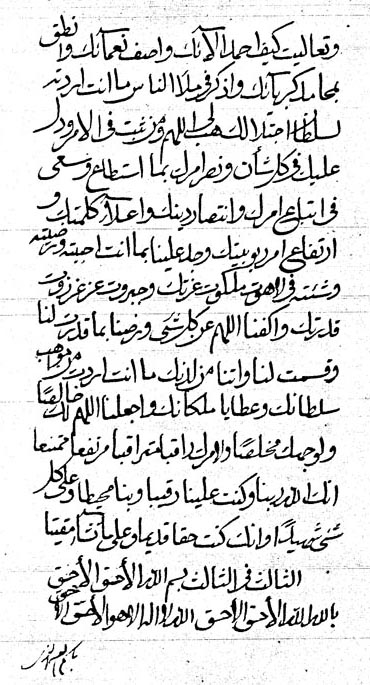 وتعاليت كيف احمد الآئك واصف نعمآئك وانطق
بمحامد كبريائك واذكر في ملاء الناس ما انت اردته
لسلطان اجتلالك هب لي اللهم من رغبت في الامر ودل
عليك في كل شأن ونصر امرك بما استطاع وسعى
في اتباع امرك وانتصار دينك واعلاء كلمتك و
ارتفاع امر ربوبيتك وجد علينا بما انت احبته ورضيته
وشئته في ملكوت عزتك وجبروت عز
قدرتك واكفنا اللهم عن كل شئ ورضنا بما قدرت لنا
وقسمت لنا واتنا من لدنك ما انت اردت من مواهب
سلطانك وعطايا ملكانك واجعلنا اللهم لك خالصا
ولوجهك مخلصا ولامرك راقبا مرتقبا مرتفعا ممتنعا
انك الله ربنا وكنت علينا رقيبا وبنا محيطا وعلى كل
شئ شهيدا وانك كنت حقا قديما وعلى مقيتا
الثالث في الثالث بسم الله الأحق الأحق
بالله الله الأحق الأحق الله لا اله الا هو الأحق الأحق